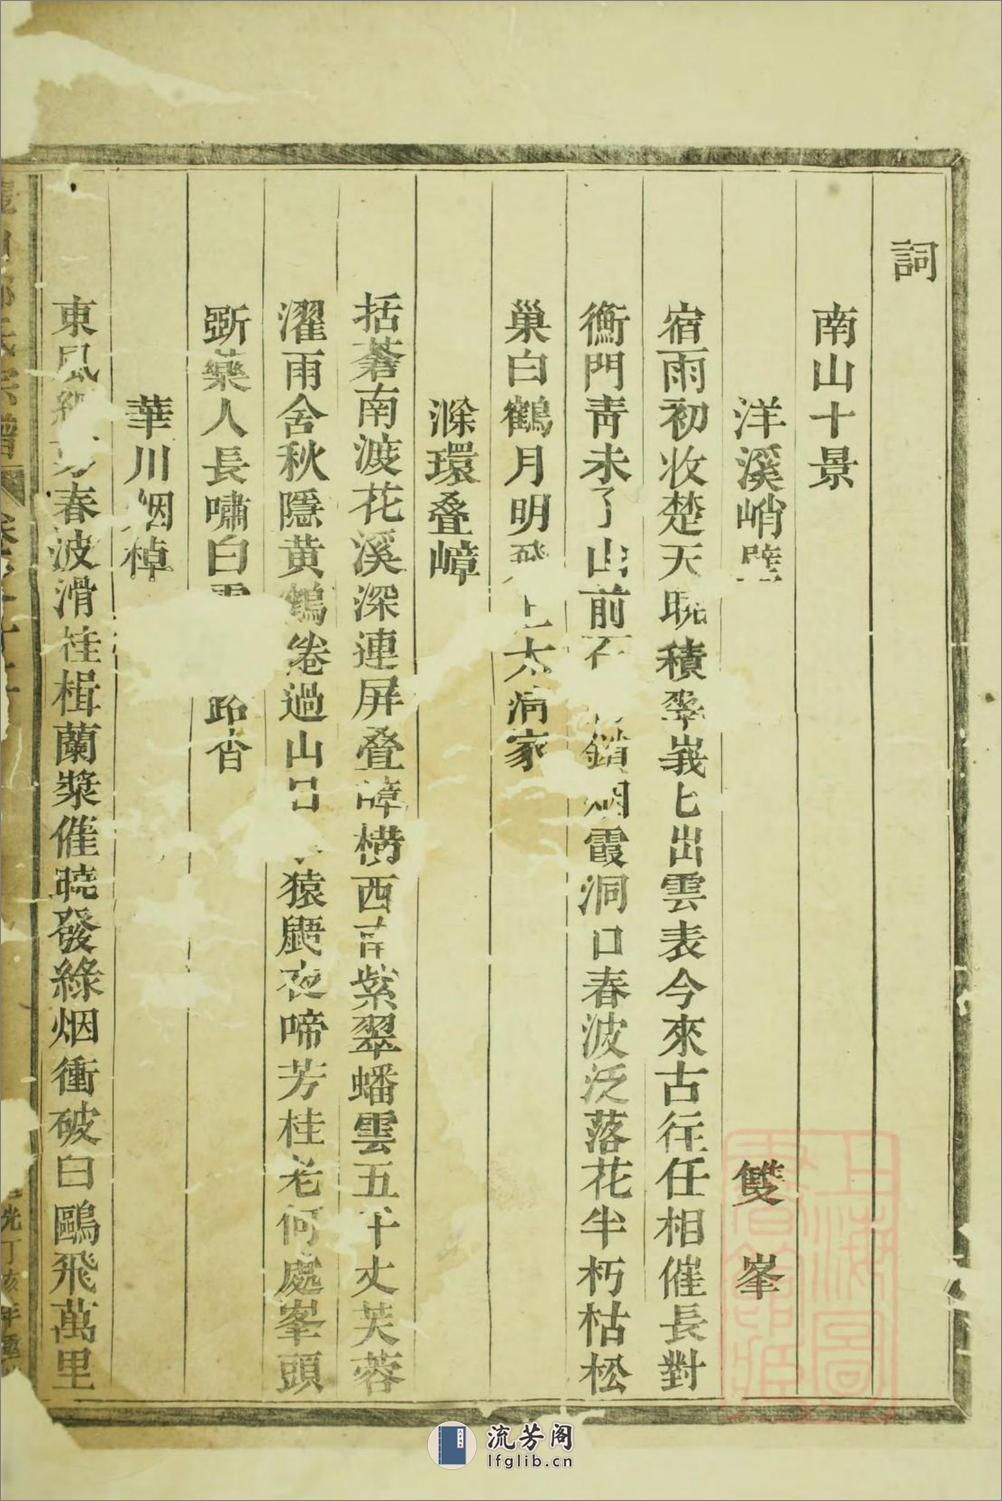 詞
南山十景
洋溪峭壁 雙峯
宿雨初收楚天晓積翠峩匕出雲表今來古徃任相催長對
衡門靑未了山前石鎖烟霞洞口春波泛落花半朽枯松
巢白鶴月明上大洞家
滁環叠嶂
括蒼南渡花溪深連屏叠嶂橫西南紫翠蟠雲五千丈芙蓉
濯雨舍秋隱黄鶴卷過山口猿鼯夜啼芳桂老何處峯頭
斲藥人長嘯白雲路杳
華川烟棹
東風春波滑桂楫蘭槳催曉發綠烟衝破白鷗飛萬里
上海圖書館藏
流芳阁
lfglib.cn